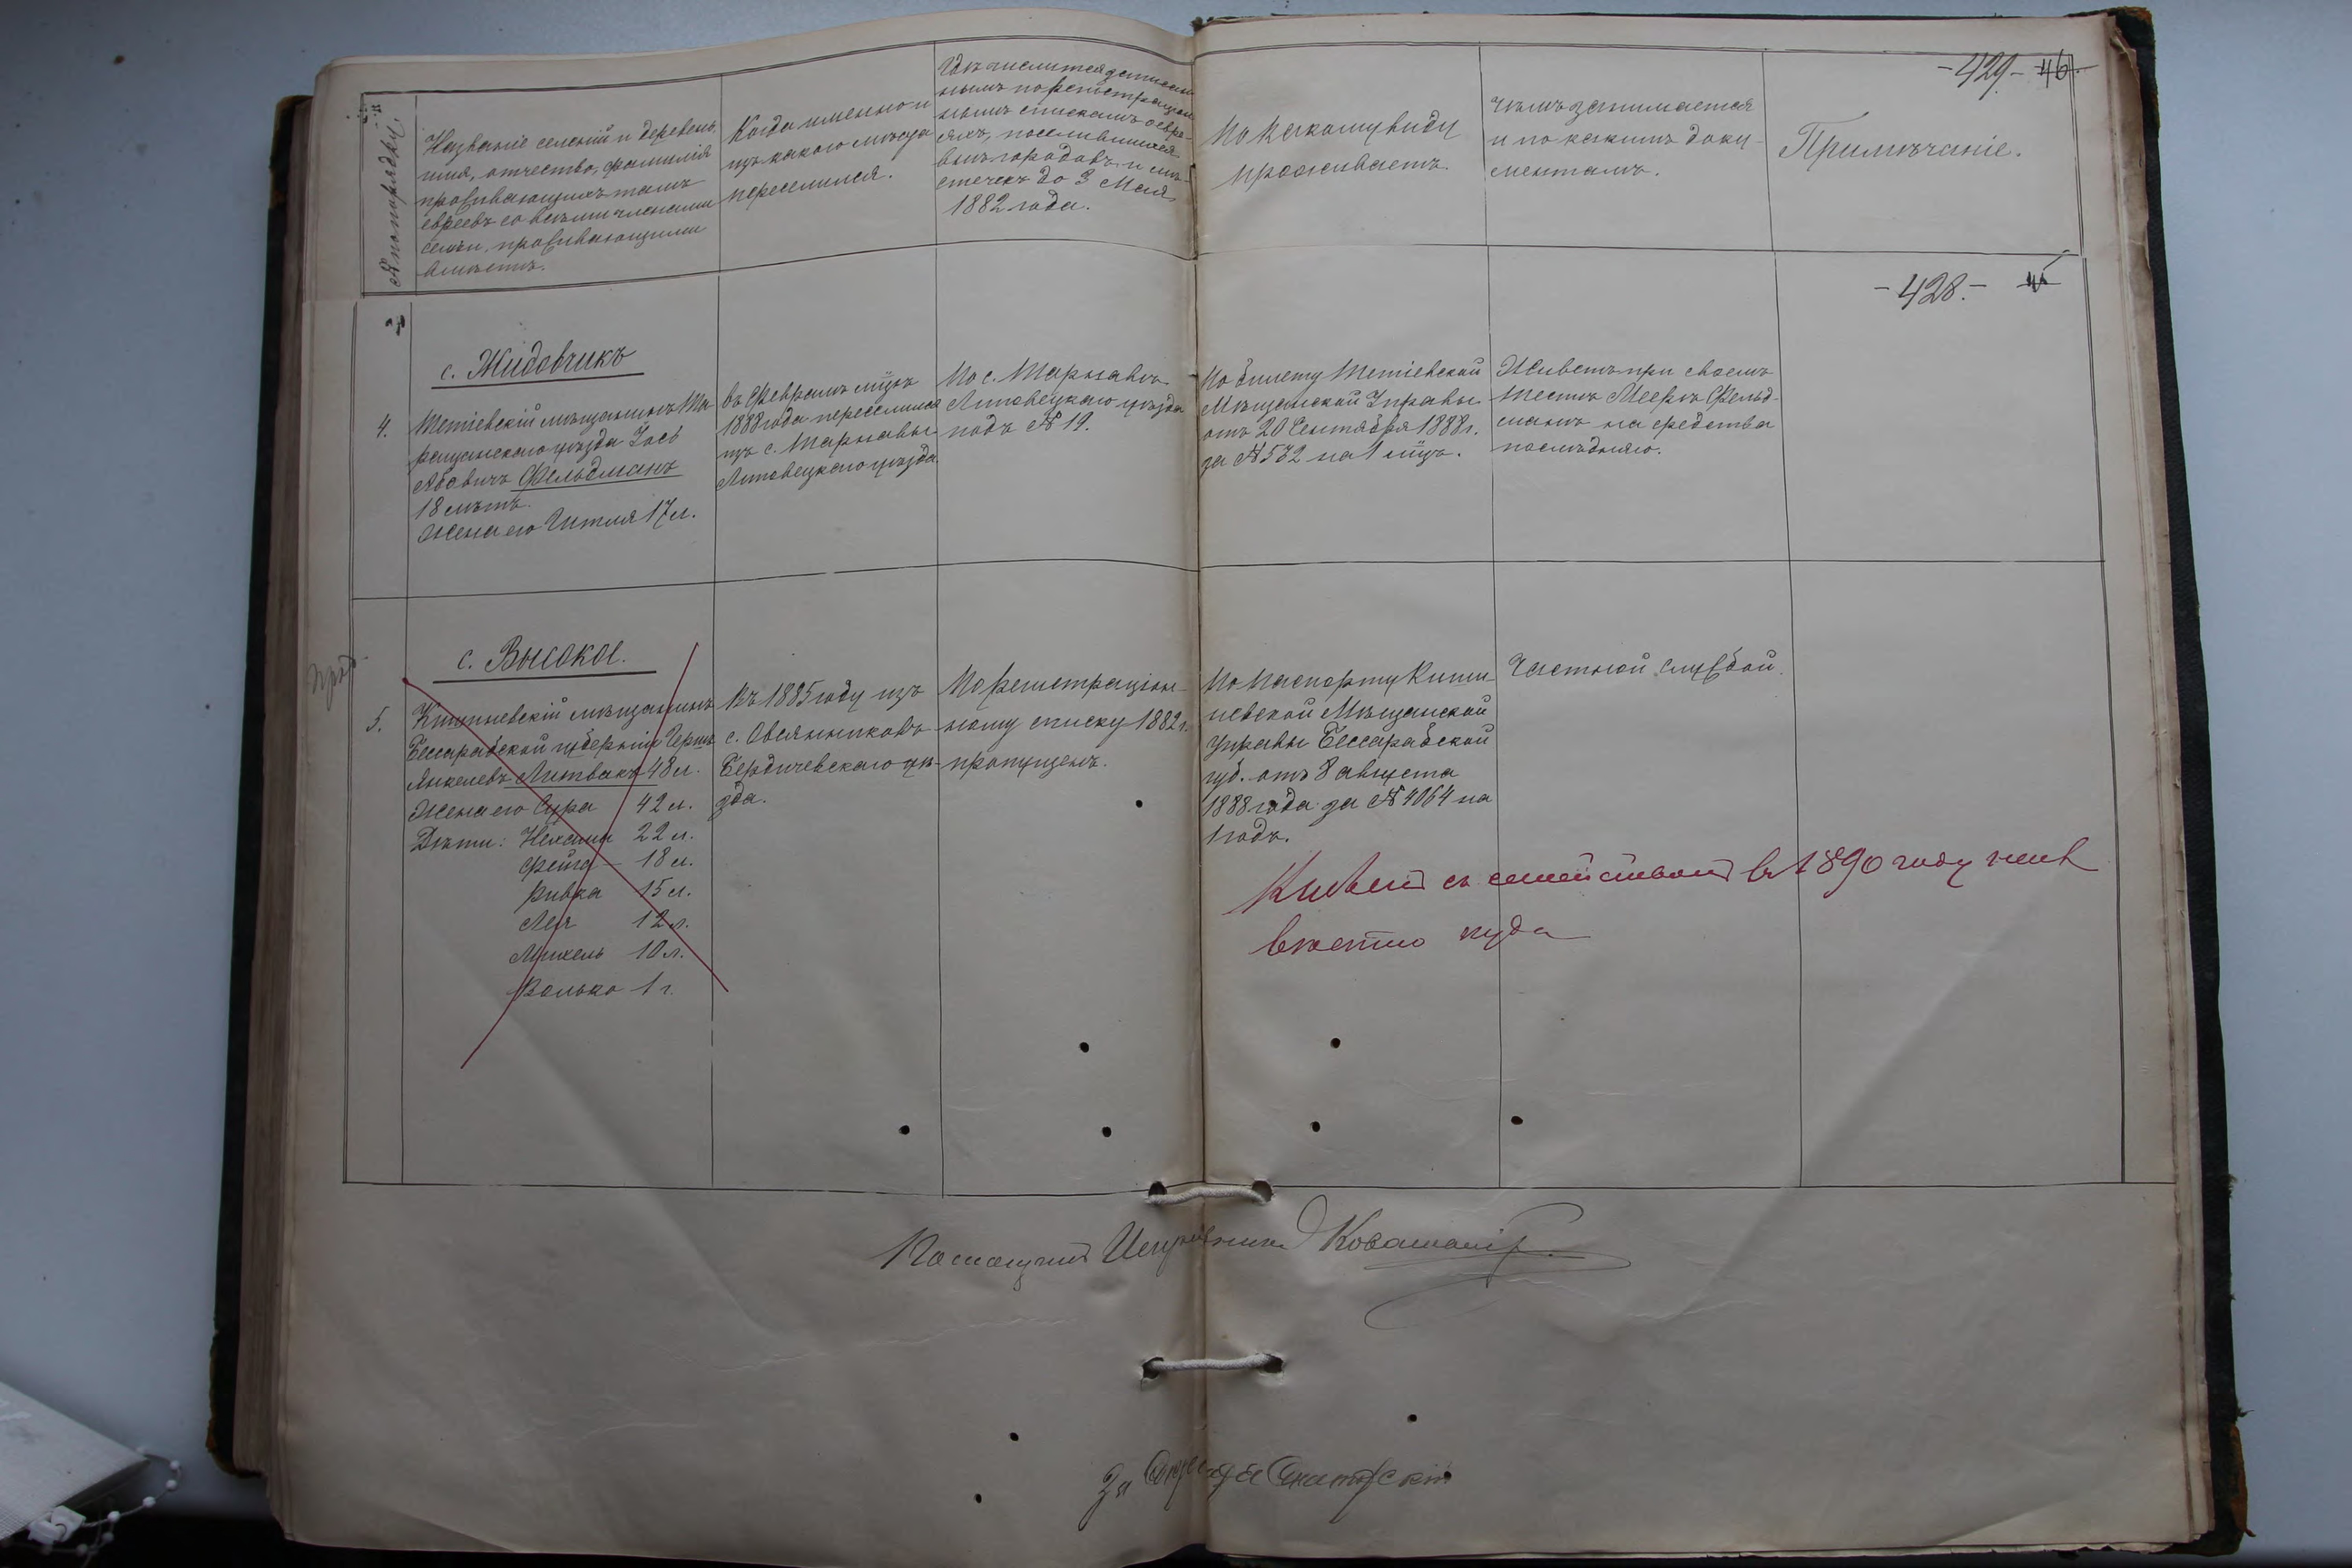 -429- 46.
№ по порядку.
Названіе селеній и деревень,
имя, отчество, фамилія
проживающихъ тамъ
евреевъ со всѣми членами
семьи, проживающими
вмѣстѣ.
Когда именно и
изъ какого мѣста
переселился.
Гдѣ числится записан
нымъ по регистраціон
нымъ спискамъ о евре-
яхъ, поселившихся
внѣ городовъ и мѣ-
стечекъ до 3 Мая
1882 года.
По какому виду
проживаетъ.
Чѣмъ занимается
и по какимъ доку-
ментамъ.
Примѣчаніе.
-428.- 45
с. Жидовчикъ
4.
Тетіевскій мѣщанинъ Та
ращанскаго уѣзда Іось
Абовичъ Фельдманъ
18 лѣтъ.
Жена его Гитля 17 л.
въ Февралѣ мцѣ
1888 года переселился
изъ с. Тарнавы
Липовецкаго уѣзда.
По с. Тарнавѣ
Липовецкаго уѣзда
подъ № 19.
По билету Тетіевской
Мѣщанской Управы
отъ 20 Сентября 1888 г.
за № 532 на 1 мцъ.
Живетъ при своемъ
тестѣ Меерѣ Фельд-
манѣ на средства
послѣдняго.
с. Высокое.
5.
Кишиневскій мѣщанинъ
Бессарабской губерніи Герш
Янкелевъ Литвакъ 48 л.
Жена его Сура 42 л.
Дѣти: Нехама 22 л.
Фейга - 18 л.
Ривка 15 л.
Лея 12 л.
Михель 10 л.
Волько 1 г.
Въ 1885 году изъ
с. Овсянниковъ
Бердичевскаго уѣ-
зда.
По регистраціон-
ному списку 1882 г.
пропущенъ.
По паспорту Киши
невской Мѣщанской
Управы Бессарабской
губ. отъ 8 августа
1888 года за № 4064 на
1 годъ.
Частной службой.
съ семействомъ въ 1890 году неиз
вѣстно куда
Помощникъ Исправника
За Секретаря